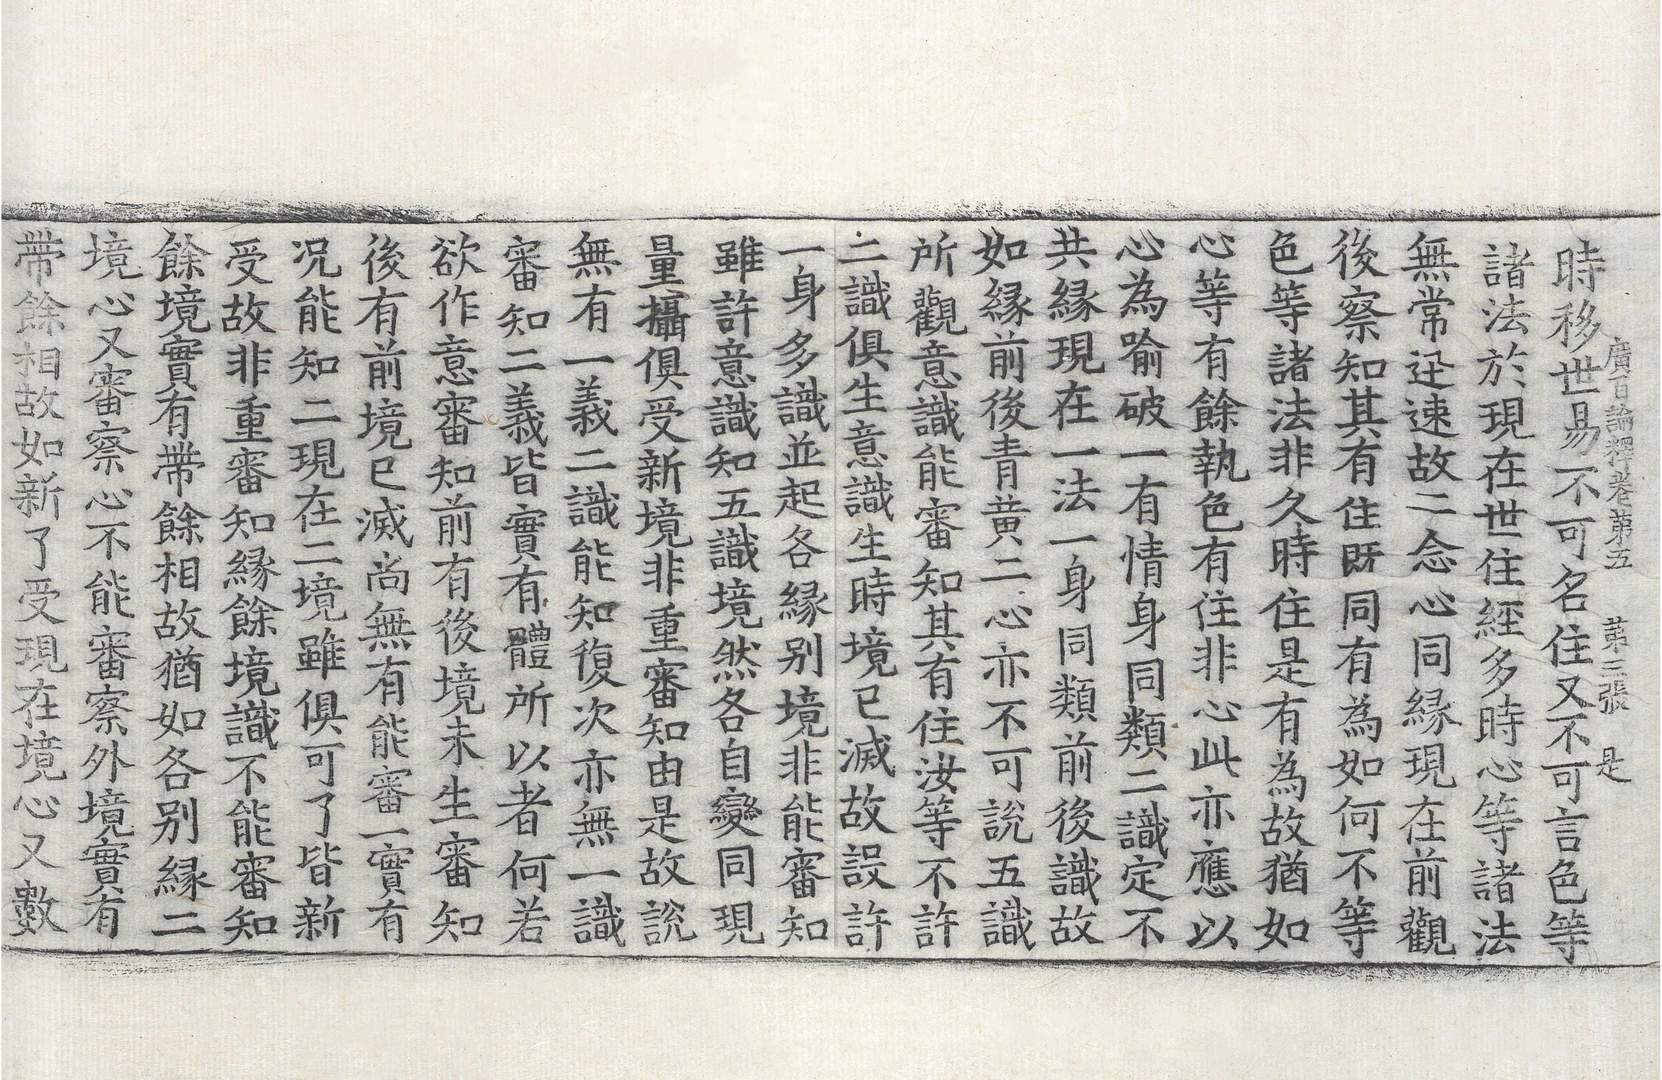 廣百論釋卷第五　第三張　是
時移世易不可名住又不可言色等
諸法於現在世住經多時心等諸法
無常迅速故二念心同緣現在前觀
後察知其有住既同有為如何不等
色等諸法非久時住是有為故猶如
心等有餘執色有住非心此亦應以
心為喻破一有情身同類二識定不
共緣現在一法一身同類前後識故
如緣前後青黃二心亦不可說五識
所觀意識能審知其有住汝等不許
二識俱生意識生時境已滅故設許
一身多識並起各緣別境非能審知
雖許意識知五識境然各自變同現
量攝俱受新境非重審知由是故說
無有一義二識能知復次亦無一識
審知二義皆實有體所以者何若
欲作意審知前有後境未生審知
後有前境已滅尚無有能審一實有
況能知二現在二境雖俱可了皆新
受故非重審知緣餘境識不能審知
餘境實有帶餘相故猶如各別緣二
境心又審察心不能審察外境實有
帶餘相故如新了受現在境心又數